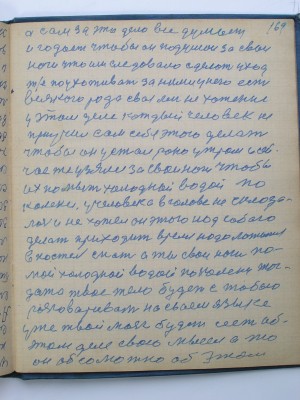 169
а сам за это дело все думает
и гадает чтобы он подумал за свои
ноги что им следовало сделат уход
их за ними у него ест
всякого рода свое не хотение
у этом деле каждый человек не
приучил сам себя этого делат
чтобы он устал рано утром и сей
час же узялся за свои ноги чтобы
их помыт холодной водой по
колени. у человека в голове не
и не хотел он этого над собою
делат приходит время надо ложится
в постел спат а ты свои ноги по
мой холодной водой по колени тог
да та твое тело будет с тобою
разговариват на своем языке
уже твой мозг будет имет об
этом деле свою мысел а то
он об этом